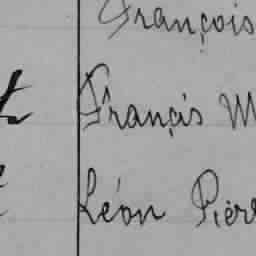 François
Françis M
Léon Pierr